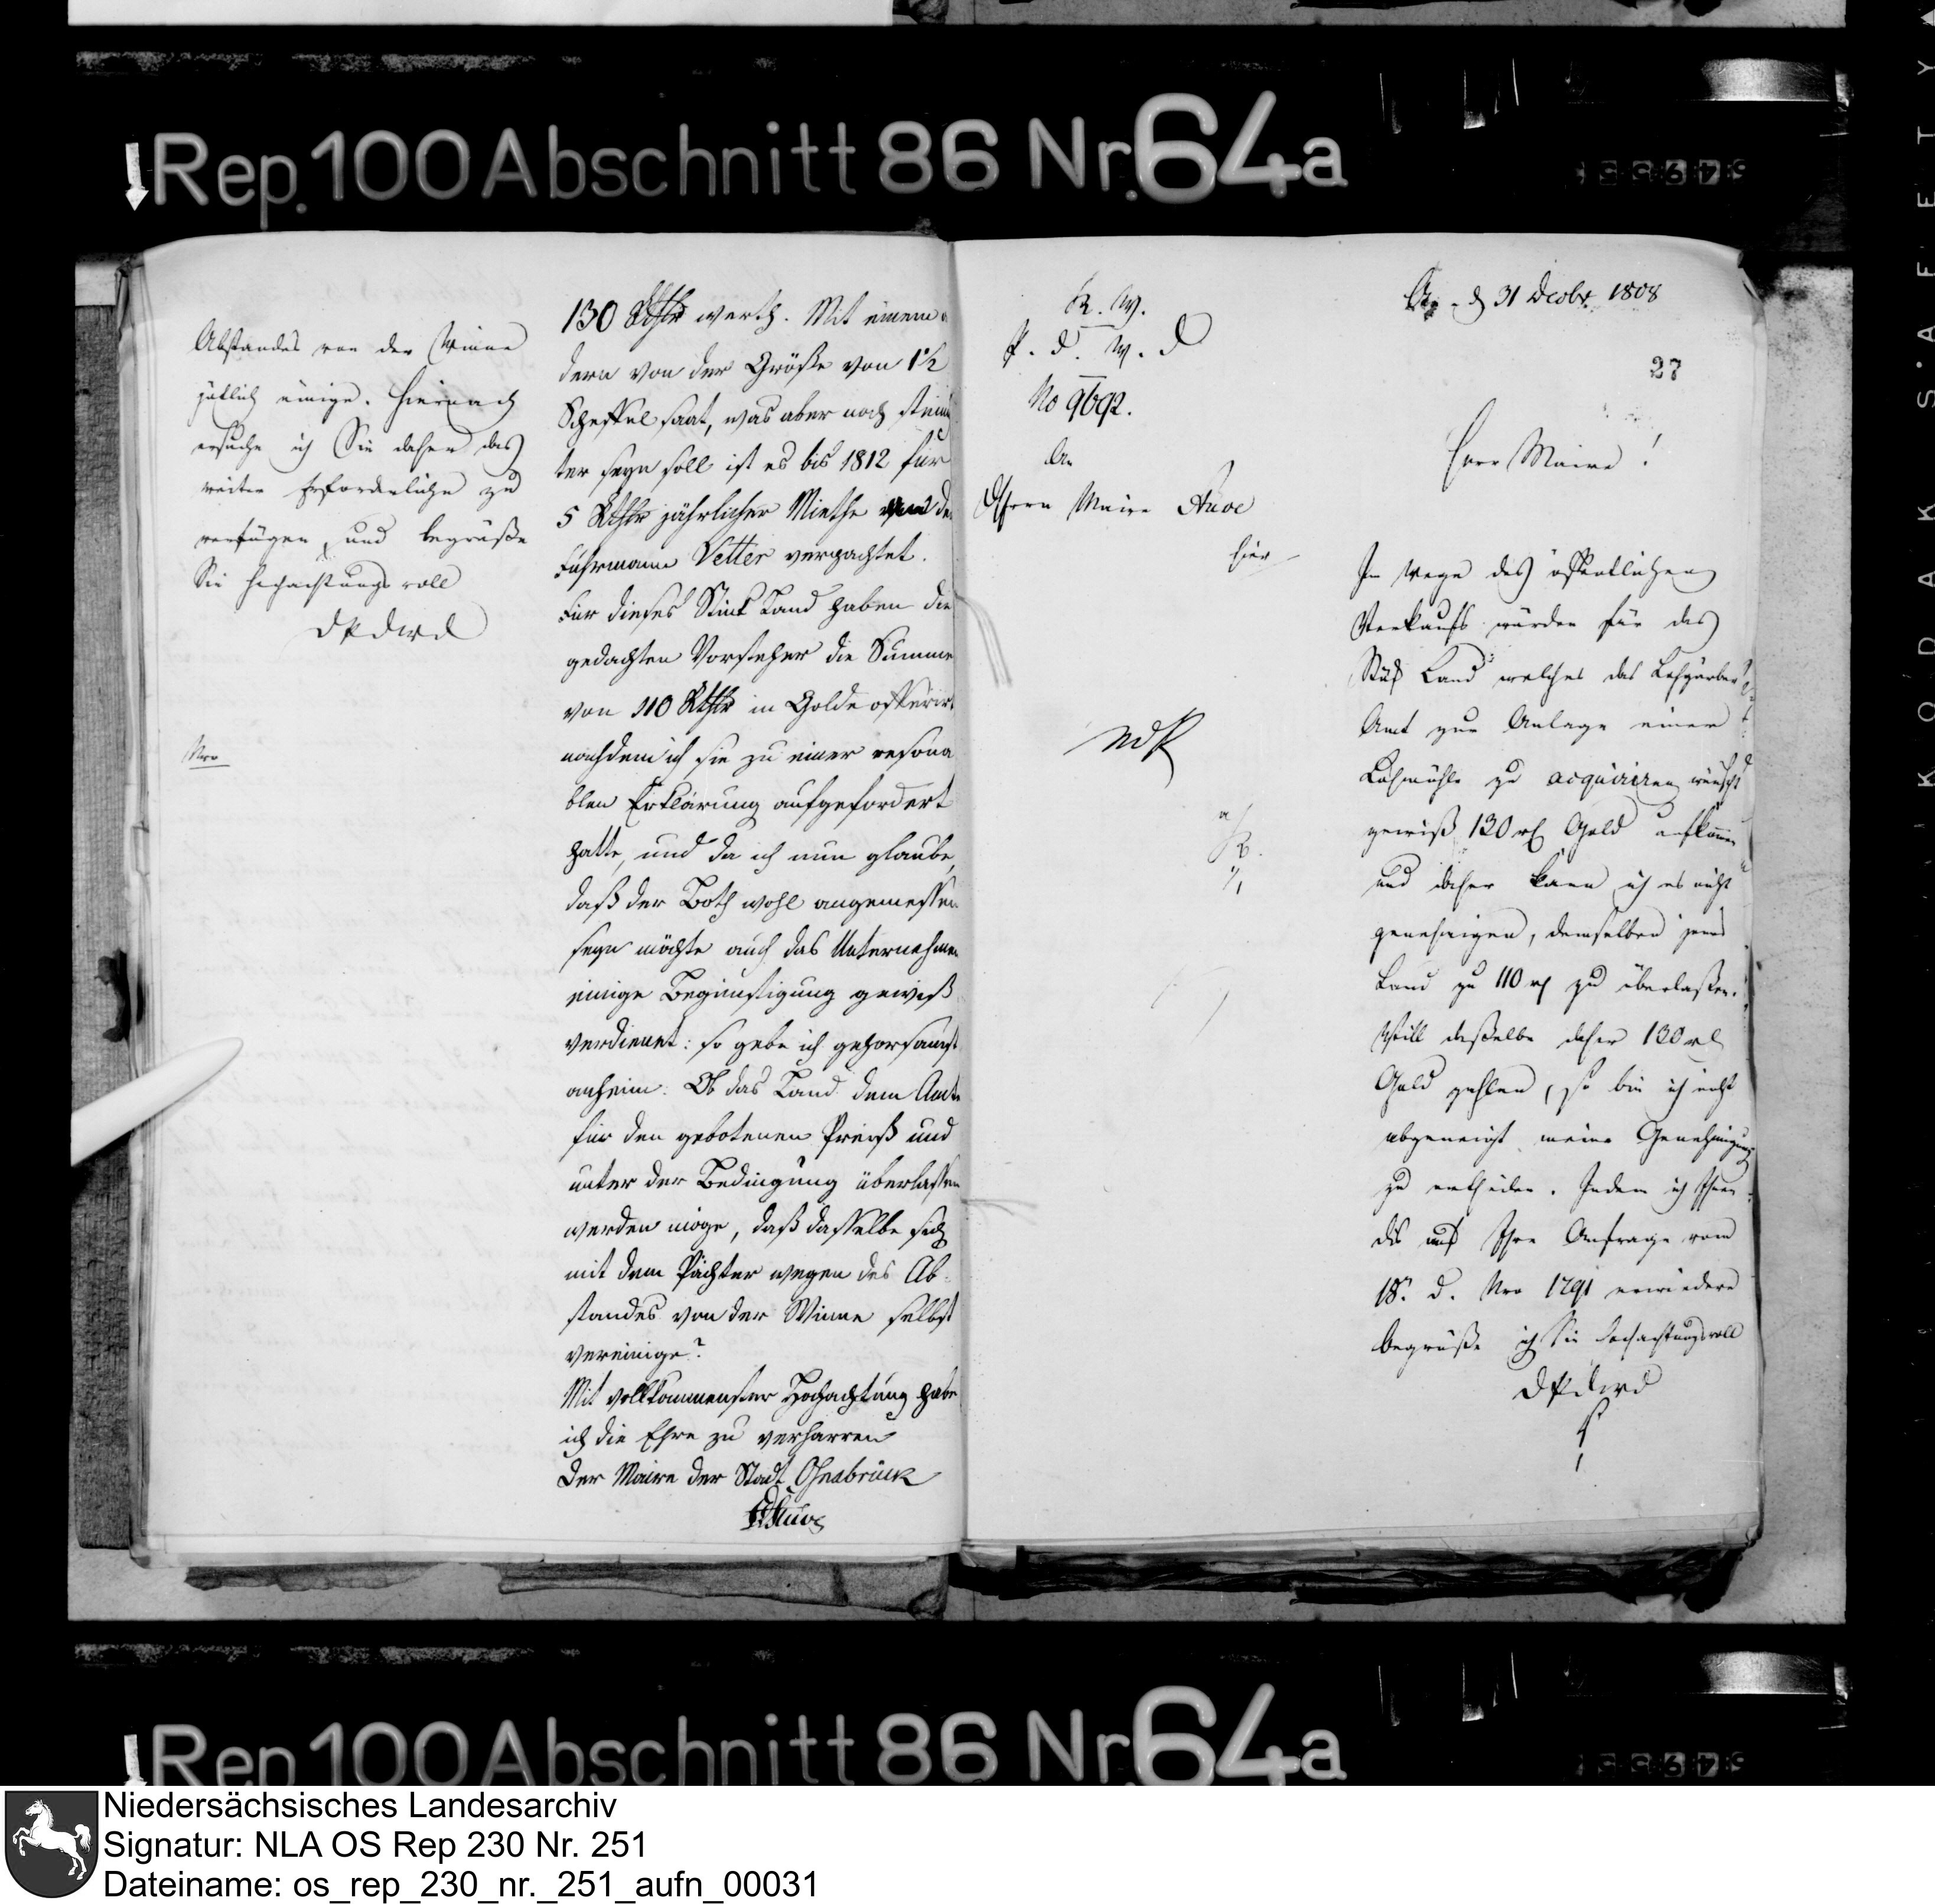 Rep. 100 Abschnitt 86 Nr. 64a
Abstandes von der Winne
gütlich einige. Hiernach
ersuche ich Sie daher das
weiter Erforderliche zu
verfügen und begrüße
Sie hochachtungsvoll
DPdWD
Nro
130 Rthlr werth. Mit einem a
dern von der Größe von 1½
Scheffel saat, was aber noch
ter seyn soll ist es bis 1812 für
5 Rthlr jährlicher Miethe an de
Fuhrmann Vetter verpachtet.
Für dieses Stück Land haben die
gedachten Vorsteher die Summe
von 110 Rthlr in Golde offerirt
nachdem ich sie zu einer resona
blen Erklärung aufgefordert
hatte, und da ich nun glaube,
daß der Both wohl angemessen
seyn möchte auch das Unternehmen
einige Begünstigung gewiß
verdienet: so gebe ich gehorsamst
anheim: Ob das Land dem Amte
für den gebotenen Preiß und
unter der Bedingung überlassen
werden möge, daß dasselbe sich
mit dem Pächter wegen des Ab-
standes von der Winne selbst
vereinige?
Mit vollkommenster Hochachtung habe
ich die Ehre zu verharren
Der Maire der Stadt Osnabrück
Stüve
K. W.
P. d. W. D
No 9692.
An
Herrn Maire Stüve
hier
d 31 Decbr. 1808
27
Herr Maire!
Im Wege des öffentlichen
Verkaufs würden für das
Stück Land welches das Lohgärber
Amt zur Anlage einer
Lohmühle zu acquiriren wünscht
gewiß 130 rh Gold aufkommen
und daher kann ich es nicht
genehmigen, demselben jenes
Land zu 110 rh zu überlaßen.
Will daßelbe daher 130 rh
Gold zahlen, so bin ich nicht
abgeneigt meine Genehmigung
zu ertheilen. Indem ich Ihnen
dis auf Ihre Anfrage vom
18. d. Nro 1791 erwiedere
begrüße ich Sie hochachtungsvoll
DPdWD
Rep. 100 Abschnitt 86 Nr. 64a
KODAK SAFETY
Niedersächsisches Landesarchiv
Signatur: NLA OS Rep 230 Nr. 251
Dateiname: os_rep_230_nr._251_aufn_00031